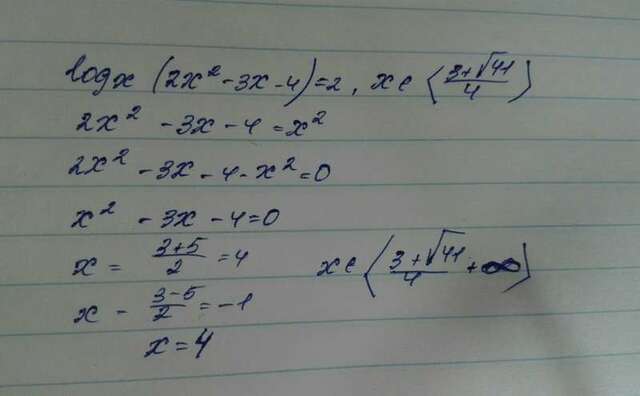 logx (2x² - 3x - 4) = 2, x ∈ ⟨(3+√41)/4⟩
2x² - 3x - 4 = x²
2x² - 3x - 4 - x² = 0
x² - 3x - 4 = 0
x = (3+5)/2 = 4
x ∈ ⟨(3+√41)/4 + ∞⟩
x - (3-5)/2 = -1
x = 4